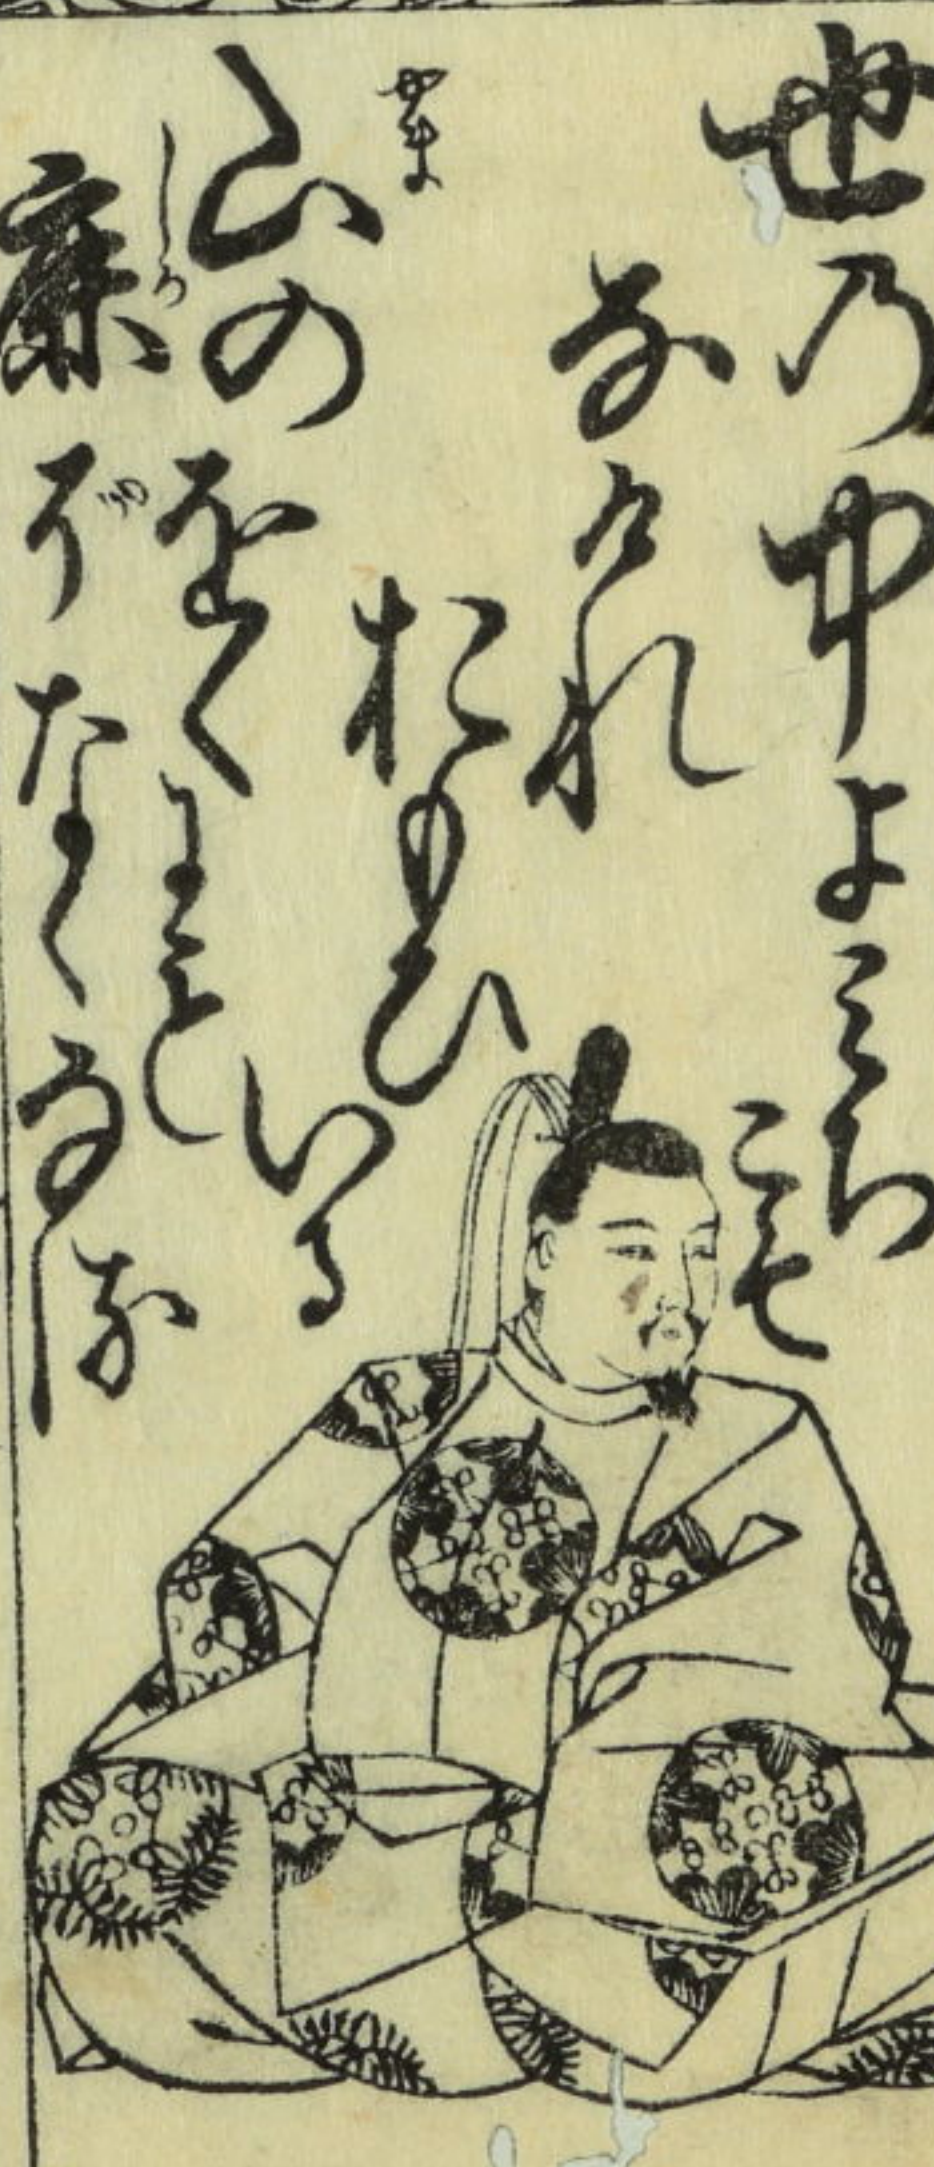 世の中よみち
こそ
なけれ
おもひ
いる
やま
山のおくにも
しか
鹿ぞなくなる